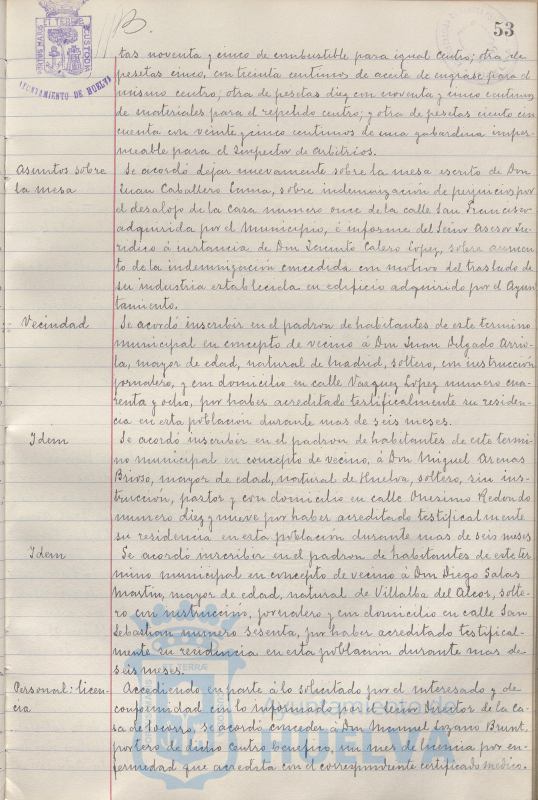 53
AYUNTAMIENTO DE HUELVA
tas noventa y cinco de combustible para igual Centro; otra de
pesetas cinco, con treinta centimos de aceite de engrase para el
mismo centro; otra de pesetas diez con noventa y cinco centimos
de materiales para el repetido centro; y otra de pesetas ciento cin
cuenta con veinte y cinco centimos de una gabardina imper-
meable para el Inspector de Arbitrios.
Asuntos sobre la mesa
Se acordó dejar nuevamente sobre la mesa escrito de Don
Juan Caballero, sobre indemnización de perjuicios por
el desalojo de la Casa numero once de la calle San Francisco
adquirida por el Municipio, é informe del Señor Asesor Ju-
ridico á instancia de Don Jacinto Calero Lopez, sobre aumen
to de la indemnización concedida con motivo del traslado de
su industria establecida en edificio adquirido por el Ayun
tamiento.
Vecindad
Se acordó inscribir en el padron de habitantes de este termino
municipal en concepto de vecino á Don Juan Delgado Arrio-
la, mayor de edad, natural de Madrid, soltero, con instrucción
jornalero, y con domicilio en calle Vazquez Lopez numero cua-
renta y ocho, por haber acreditado testificalmente su residen-
cia en esta población durante mas de seis meses.
Idem
Se acordó inscribir en el padron de habitantes de este termi-
no municipal en concepto de vecino, á Don Miguel Arenas
Brioso, mayor de edad, natural de Huelva, soltero, sin ins-
trucción, pastor y con domicilio en calle Onesimo Redondo
numero diez y nueve por haber acreditado testificalmente
su residencia en esta población durante mas de seis meses
Idem
Se acordó inscribir en el padron de habitantes de este ter-
mino municipal en concepto de vecino á Don Diego Salas
Martin, mayor de edad, natural de Villalba del Alcor, solte-
ro con instrucción, jornalero y con domicilio en calle San
Sebastian numero sesenta, por haber acreditado testifical-
mente su residencia en esta población durante mas de
seis meses.
Personal: licen-
cia
Accediendo en parte á lo solicitado por el interesado y de
conformidad con lo informado por el Señor Director de la Ca
sa de Socorro, se acordó conceder á Don Manuel Lozano Brunt,
portero de dicho Centro benefico, un mes de licencia por en-
fermedad que acredita con el correspondiente certificado médico.
Ayuntamiento de
HUELVA